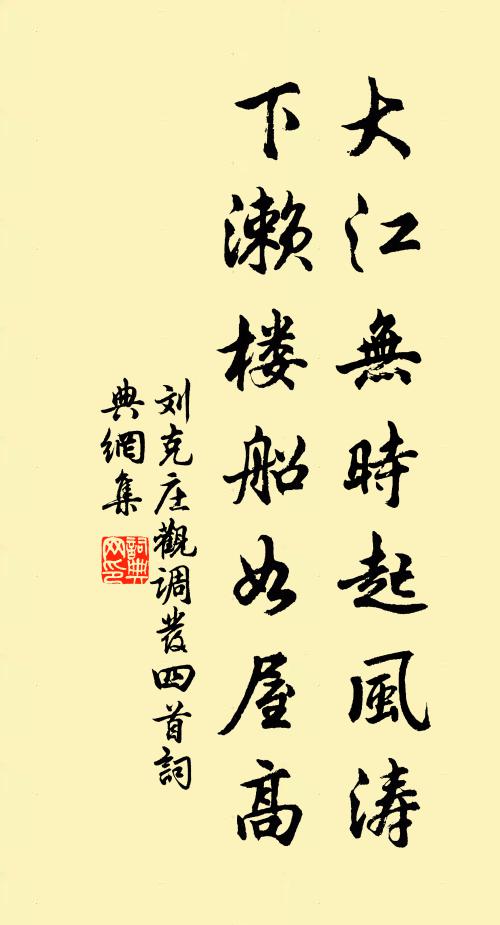 大江無時起風涛
下濑楼船如屋高
刘克庄觀调发四首詞
典網集
詞典
网印